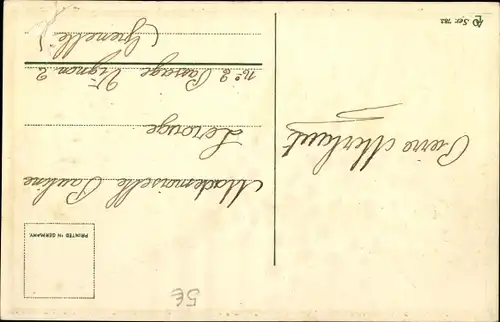 PRINTED IN GERMANY.
Mademoiselle Pauline
Lerouge
n° 2 Passage Vignon 2
(Grenelle)
Ser. 782
5€